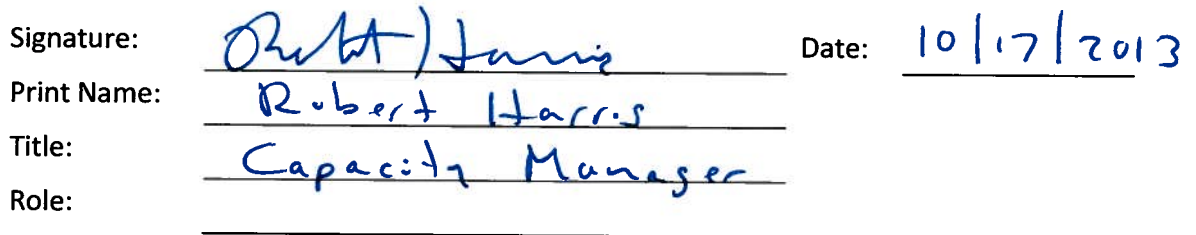 Signature: Robert Harris Date: 10/17/2013
Print Name: Robert Harris
Title: Capacity Manager
Role: